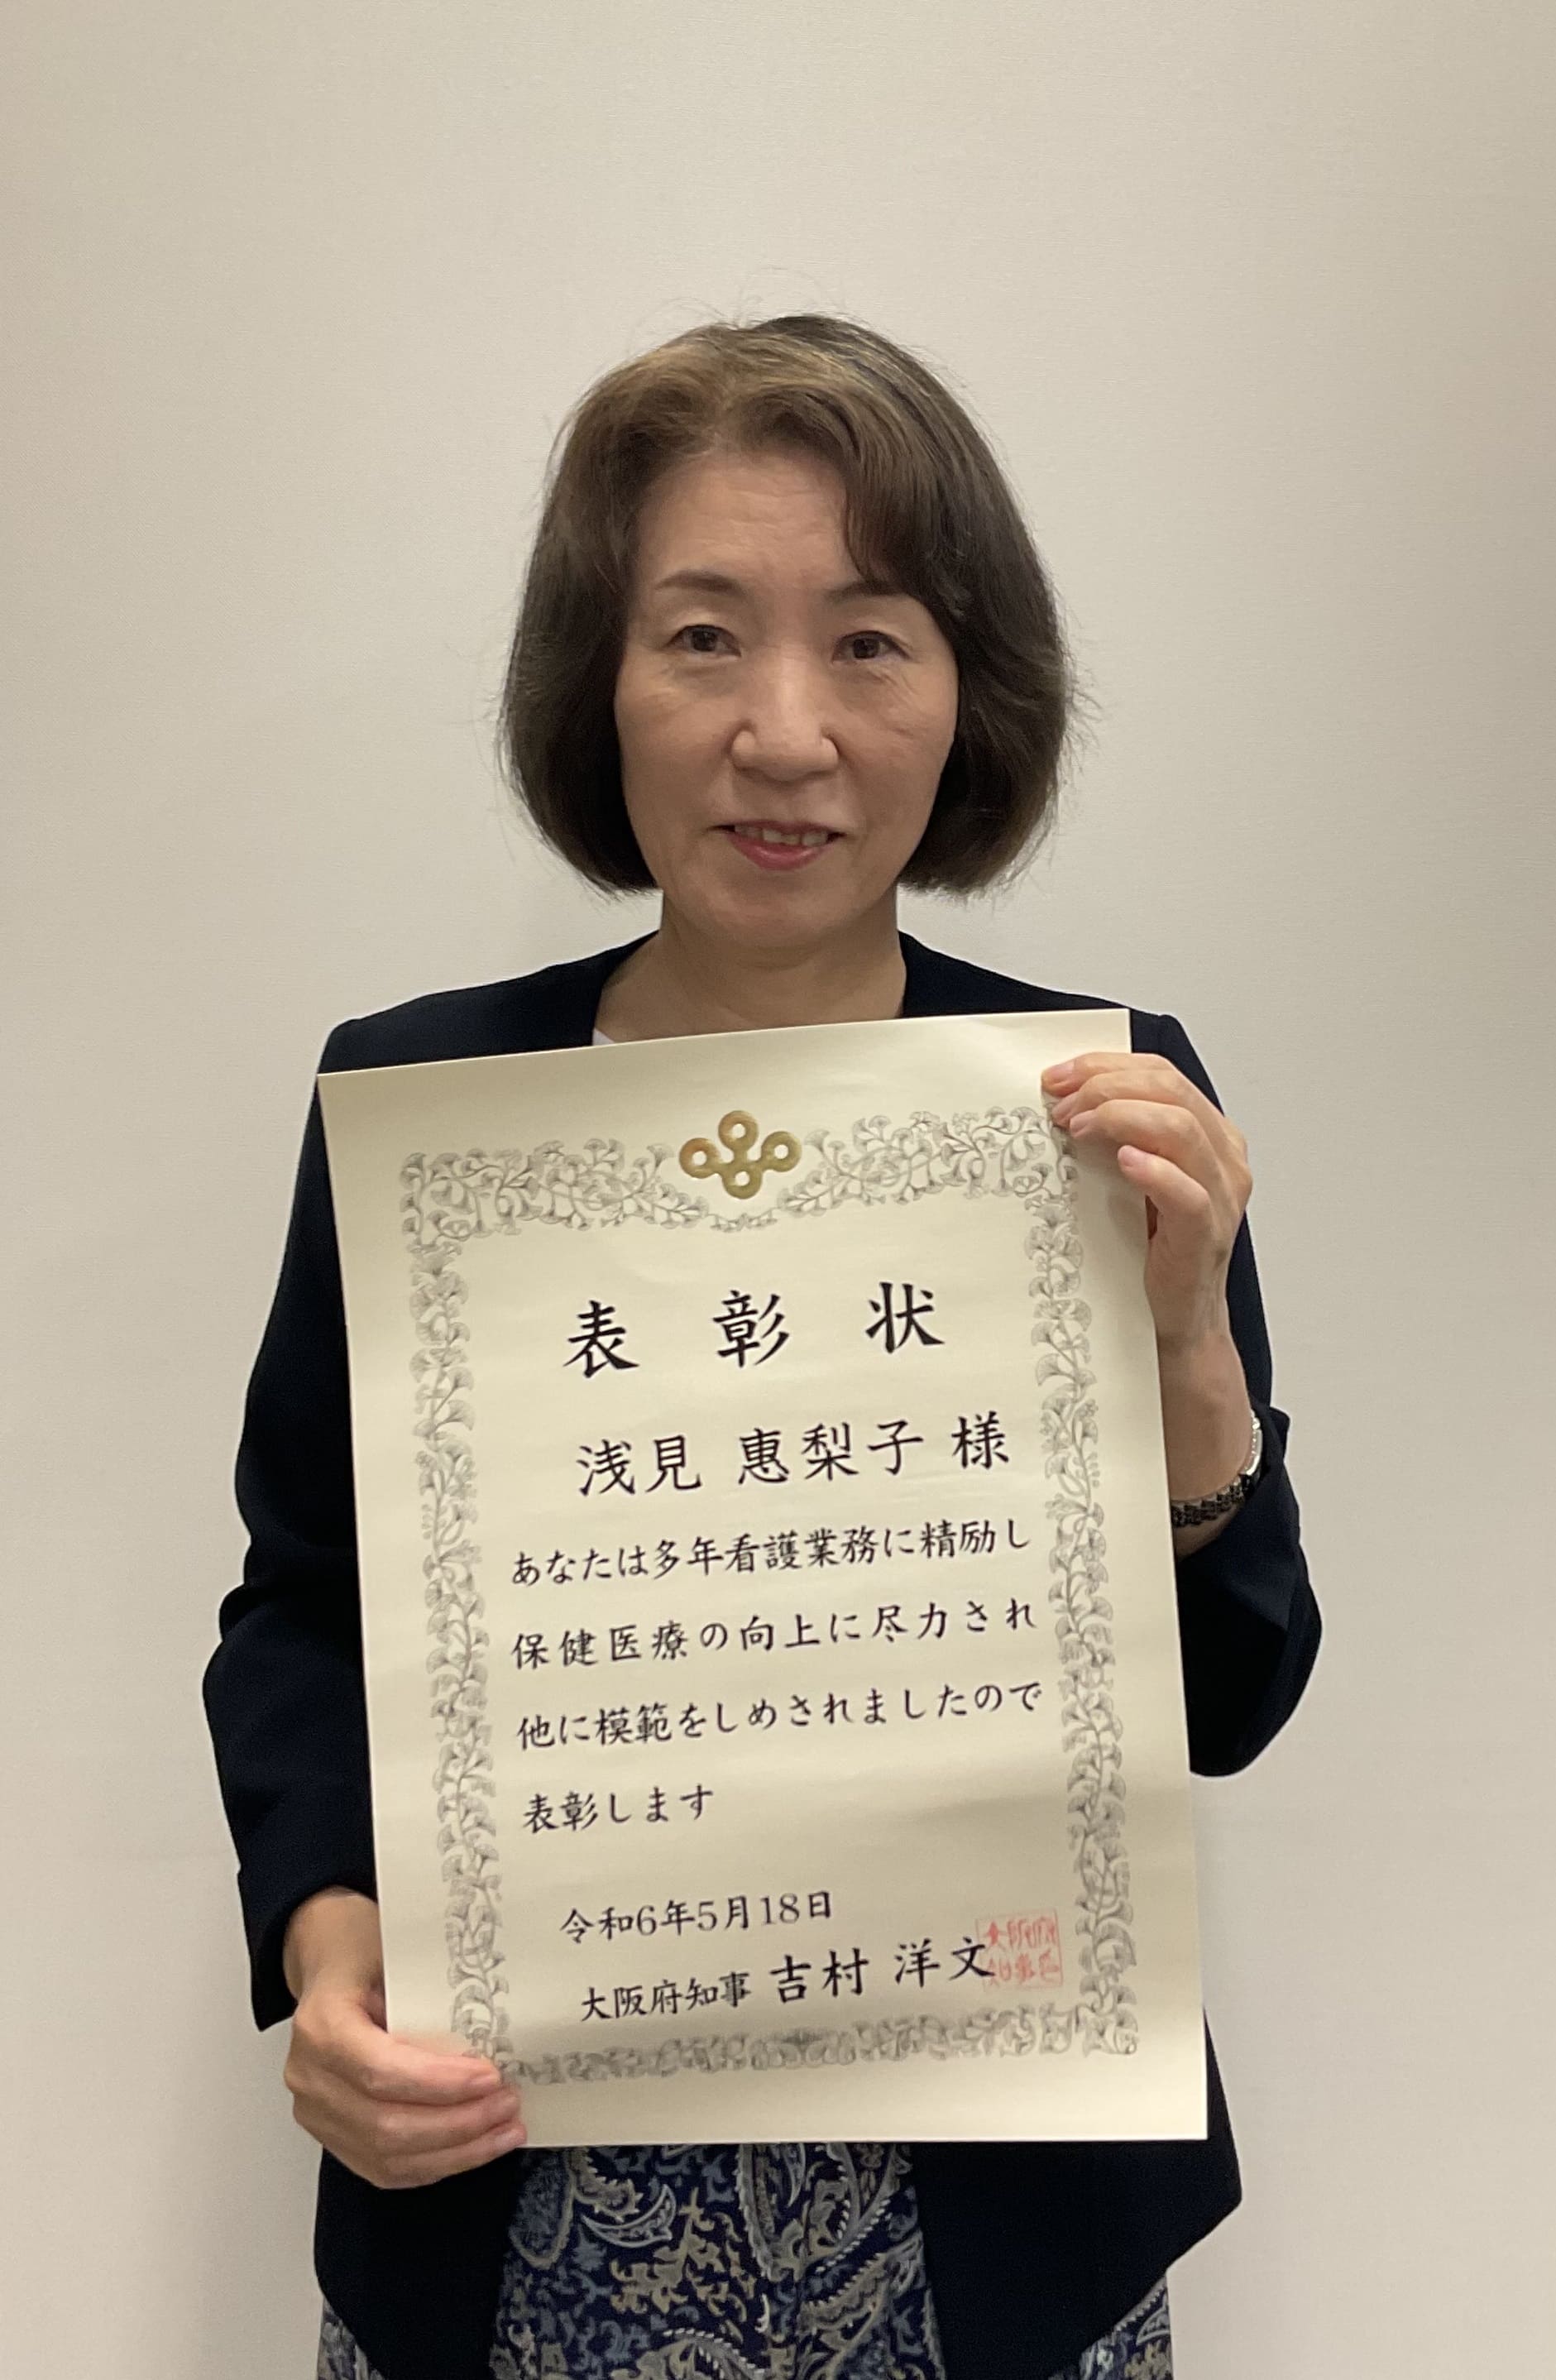 表彰状
浅見 惠梨子 様
あなたは多年看護業務に精励し
保健医療の向上に尽力され
他に模範をしめされましたので
表彰します
令和6年5月18日
大阪府知事 吉村 洋文